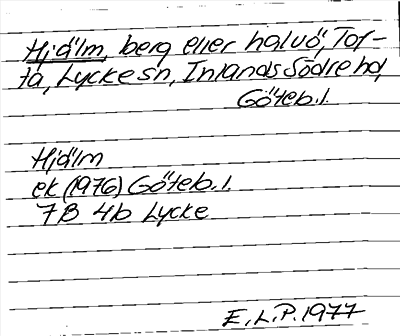 Hjälm, berg eller halvö, Tof-
ta, Lycke sn, Inlands Södre hd,
Göteb. l.
Hjälm
ek (1976) Göteb. l.
7B 4b Lycke
E. L. P. 1977